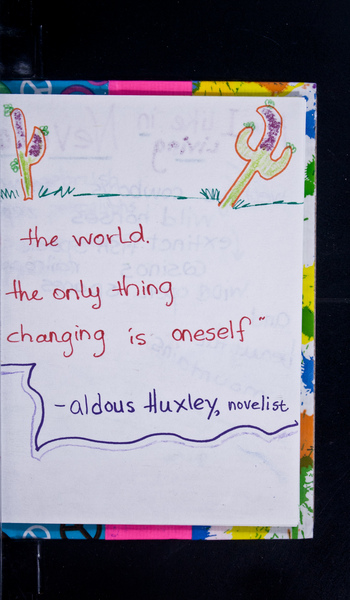 the world.
the only thing
changing is oneself"
-aldous Huxley, novelist